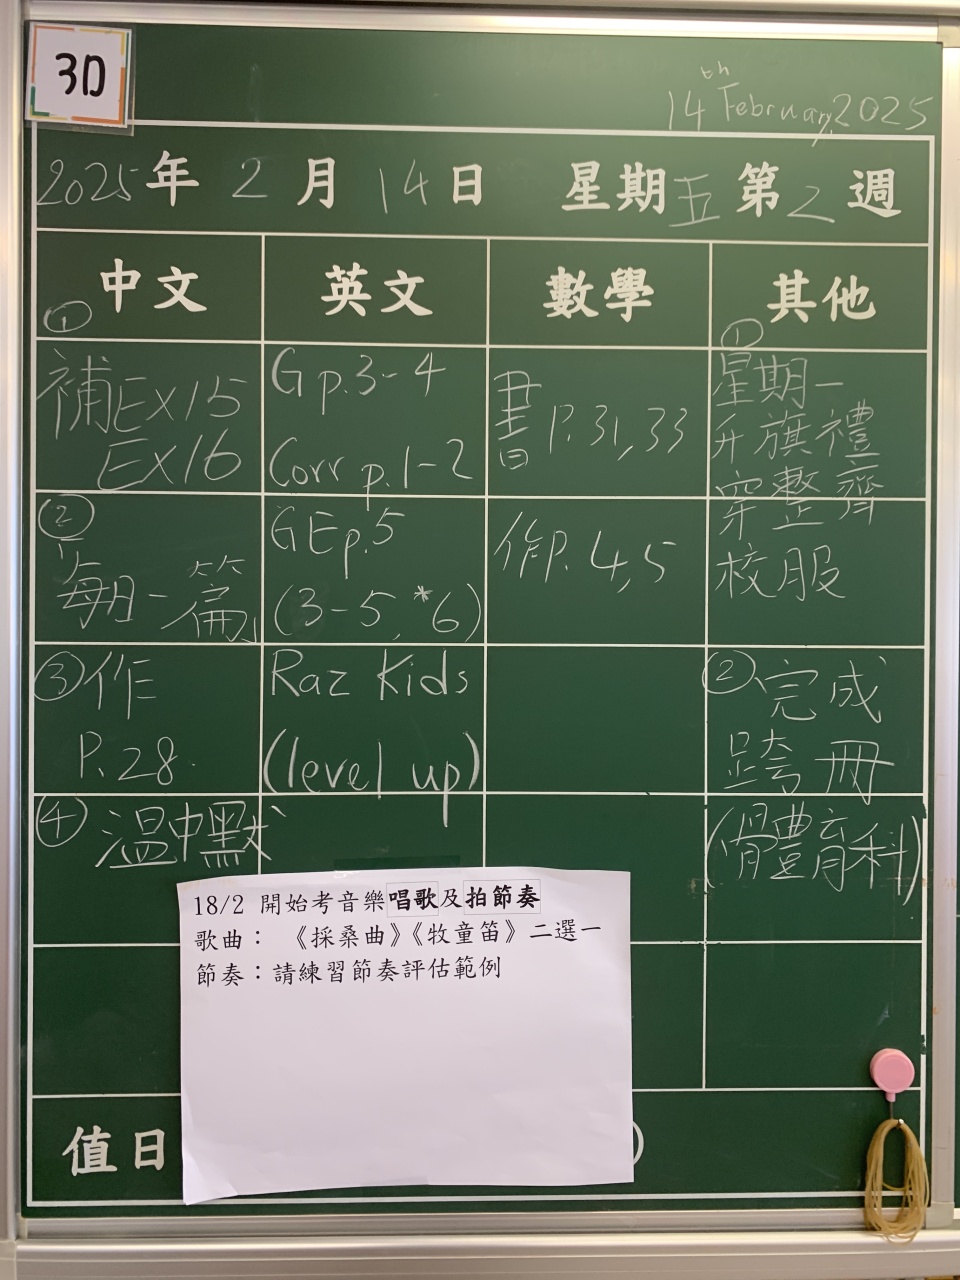 3D
14th February, 2025
2025年 2月 14日 星期五 第2週
中文 英文 數學 其他
①
補EX15
EX16
②
每日一篇
③作
P.28
④溫中默
G p.3-4
Corr p.1-2
GE p.5
(3-5, *6)
Raz Kids
(level up)
書P.31,33
作P.4,5
①
星期一
升旗禮
穿整齊
校服
②完成
跨冊
(體育科)
18/2 開始考音樂唱歌及拍節奏
歌曲：《採桑曲》《牧童笛》二選一
節奏：請練習節奏評估範例
值日
)